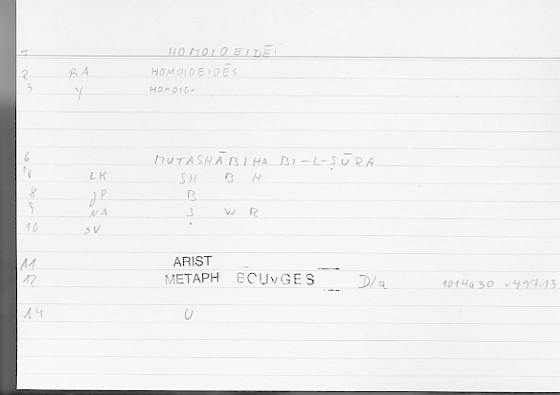 1 HOMOIOEIDĒ
2 RA HOMOIOEIDĒS
3 Y HOMOIO-
6 MUTASHĀBIHA BI-L-ṢŪRA
7 LK SH B H
8 JP B
9 NA Ṣ W R
10 SV
11 ARIST
12 METAPH BOUvGES D/a 1014a30 -497.13
14 U